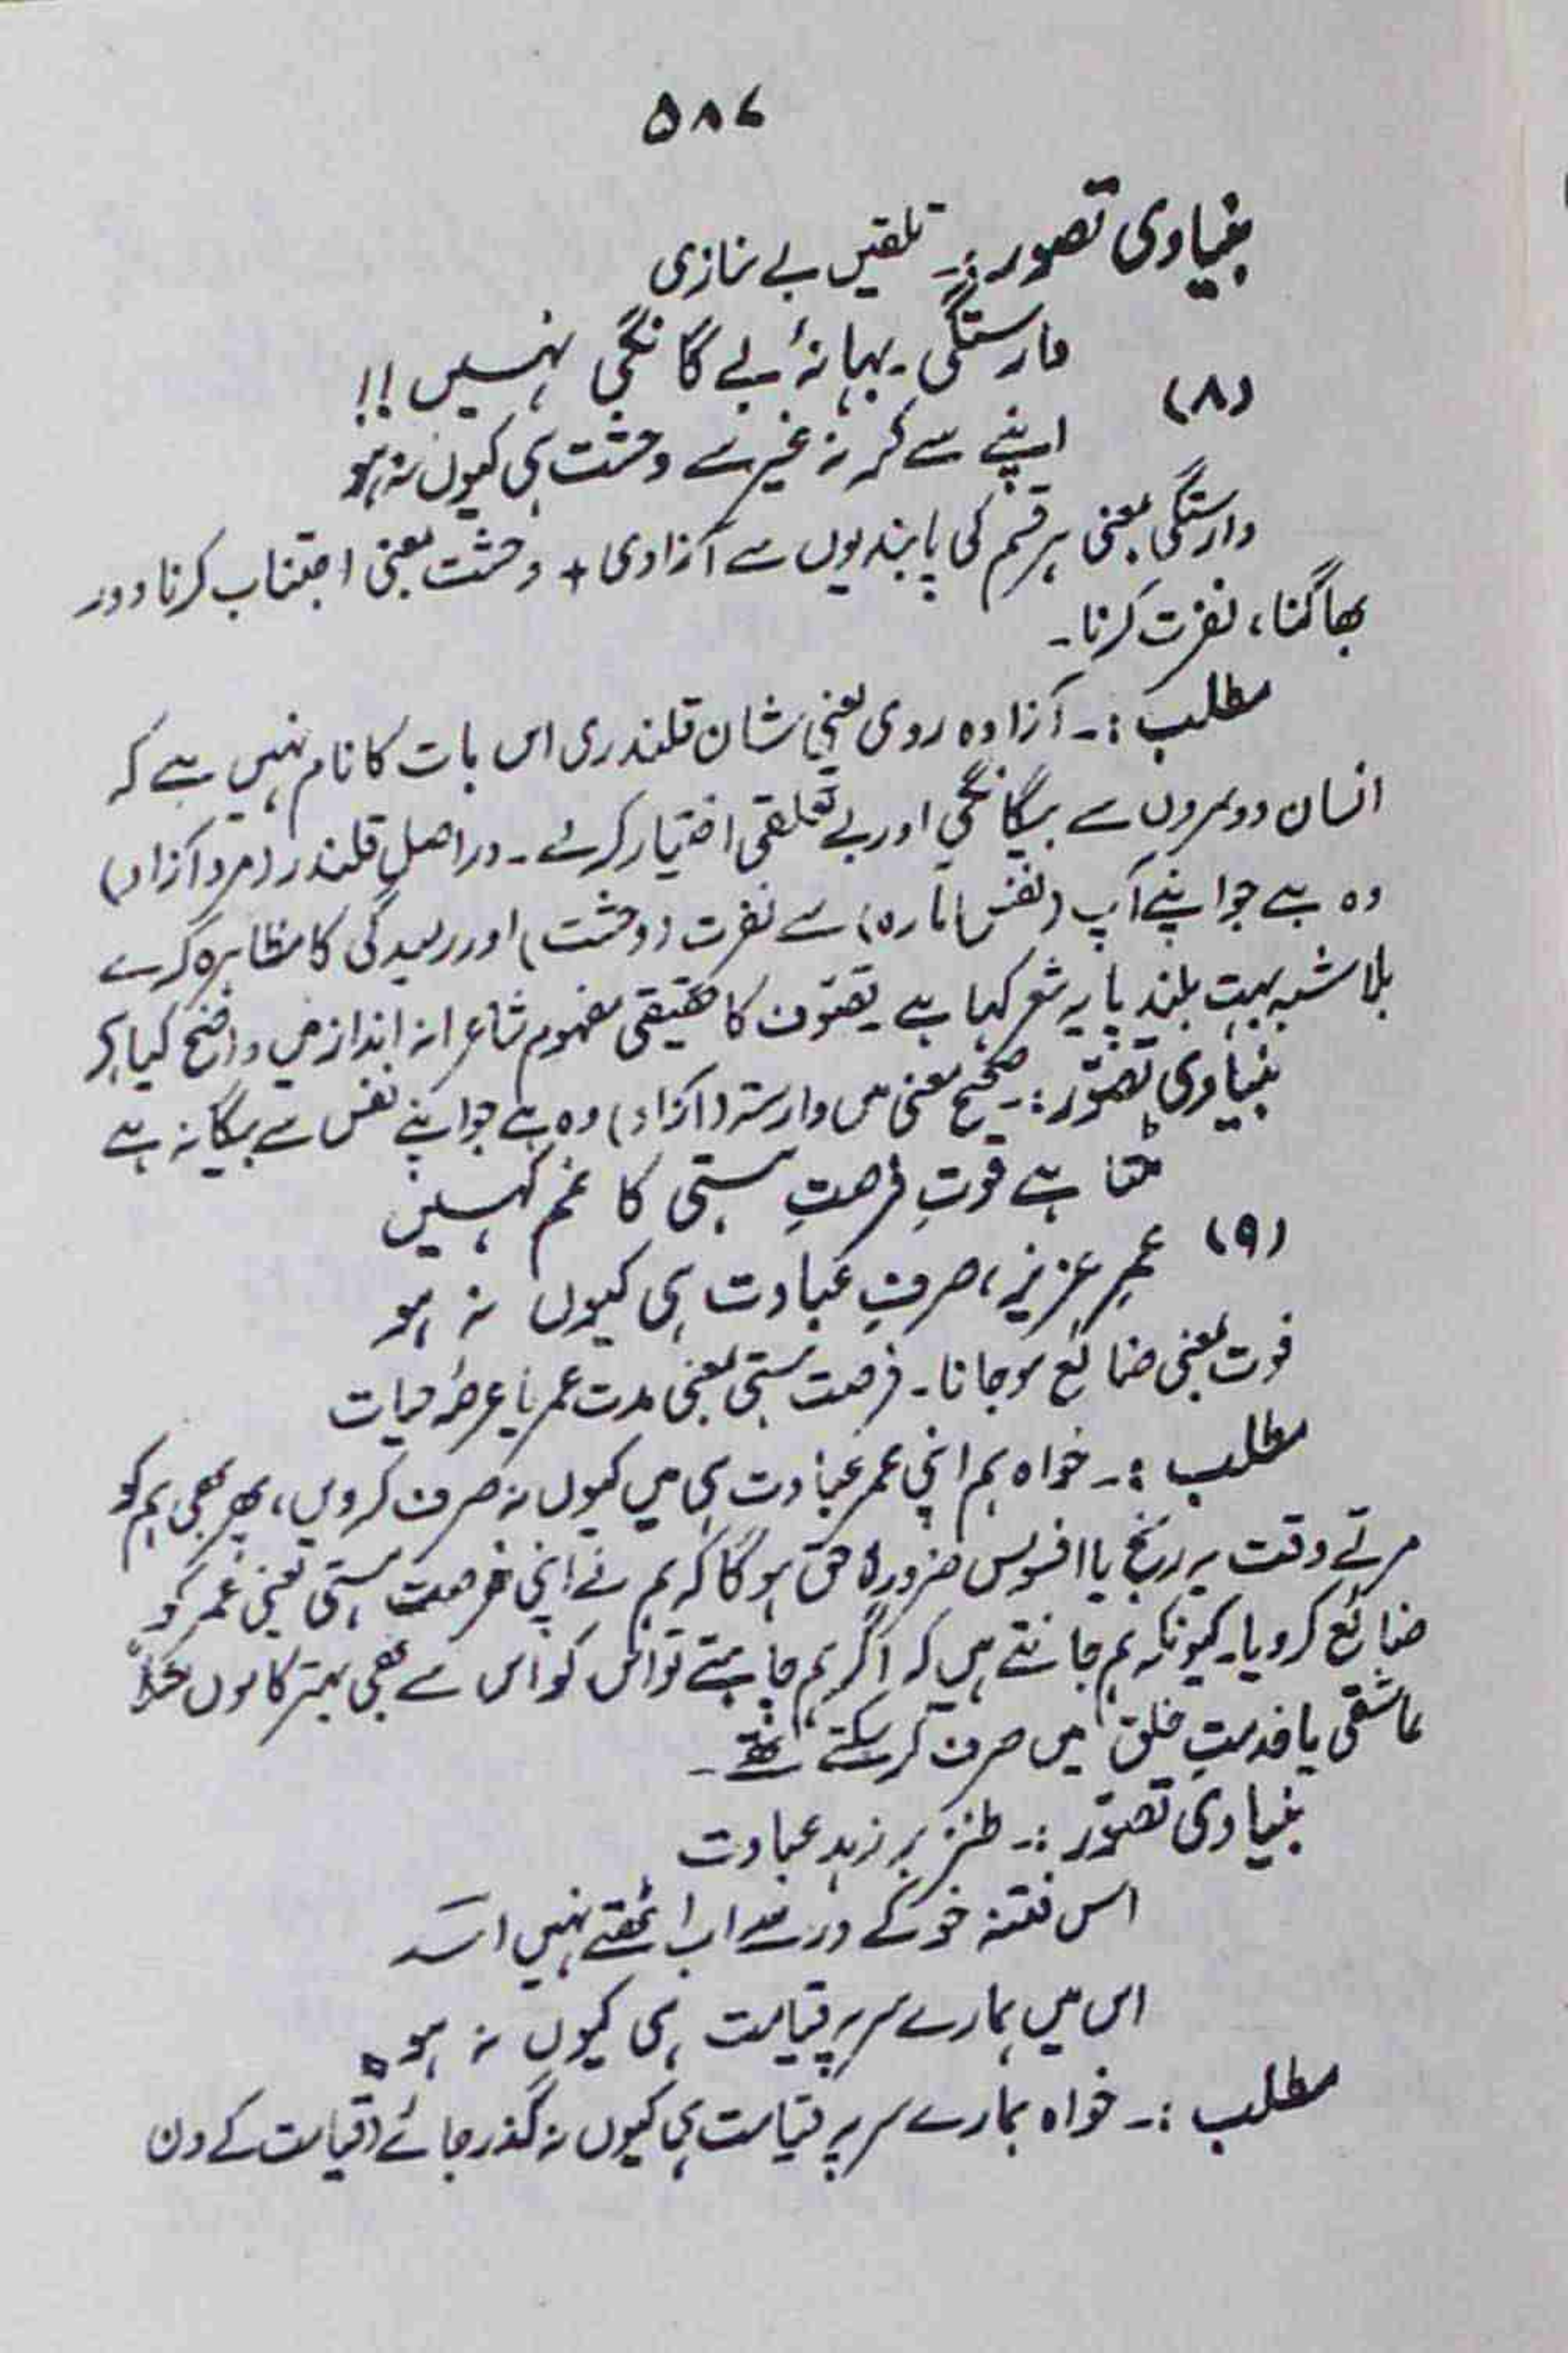 ۵۸۷
بنیادی تصور:۔ تلقین بے نیازی
وارستگی بہانۂ بے گانگی نہیں!!
(۸)
اپنے سے کر نہ غیر سے وحشت ہی کیوں نہ ہو
وارستگی بمعنی ہر قسم کی پابندیوں سے آزادی + وحشت بمعنی اجتناب کرنا دور
بھاگنا، نفرت کرنا۔
مطلب:۔ آزادہ روی یعنی شان قلندری اس بات کا نام نہیں ہے کہ
انسان دوسروں سے بیگانگی اور بے تعلقی اختیار کرلے۔ دراصل قلندر (مرد آزاد)
وہ ہے جو اپنے آپ (نفس امارہ) سے نفرت (وحشت) اور رمیدگی کا مظاہرہ کرے
بلاشبہ بہت بلند پایہ شعر کہا ہے۔ تصوّف کا حقیقی مفہوم شاعرانہ انداز میں واضح کیا ہے
بنیادی تصوّر:۔ صحیح معنی میں وارستہ (آزاد) وہ ہے جو اپنے نفس سے بیگانہ ہے
مٹتا ہے فوتِ فرصتِ ہستی کا غم کہیں
(۹)
عمرِ عزیز، صرفِ عبادت ہی کیوں نہ ہو
فوت بمعنی ضائع ہوجانا۔ فرصت ہستی بمعنی مدت عمر یا عرصۂ حیات
مطلب:۔ خواہ ہم اپنی عمر عبادت ہی میں کیوں نہ صرف کردیں، پھر بھی ہم کو
مرتے وقت یہ رنج یا افسوس ضرور لاحق ہوگا کہ ہم نے اپنی فرصت ہستی یعنی عمر کو
ضائع کردیا۔ کیونکہ ہم جانتے ہیں کہ اگر ہم چاہتے تو اس کو اس سے بھی بہتر کاموں مثلاً
عاشقی یا خدمتِ خلق میں صرف کرسکتے تھے۔
بنیادی تصوّر:۔ طنز بر زہد عبادت
اس فتنہ خو کے در سے اب اٹھتے نہیں اسؔد
اس میں ہمارے سر پہ قیامت ہی کیوں نہ ہو
مطلب:۔ خواہ ہمارے سر پہ قیامت ہی کیوں نہ گذر جائے (قیامت کے دن